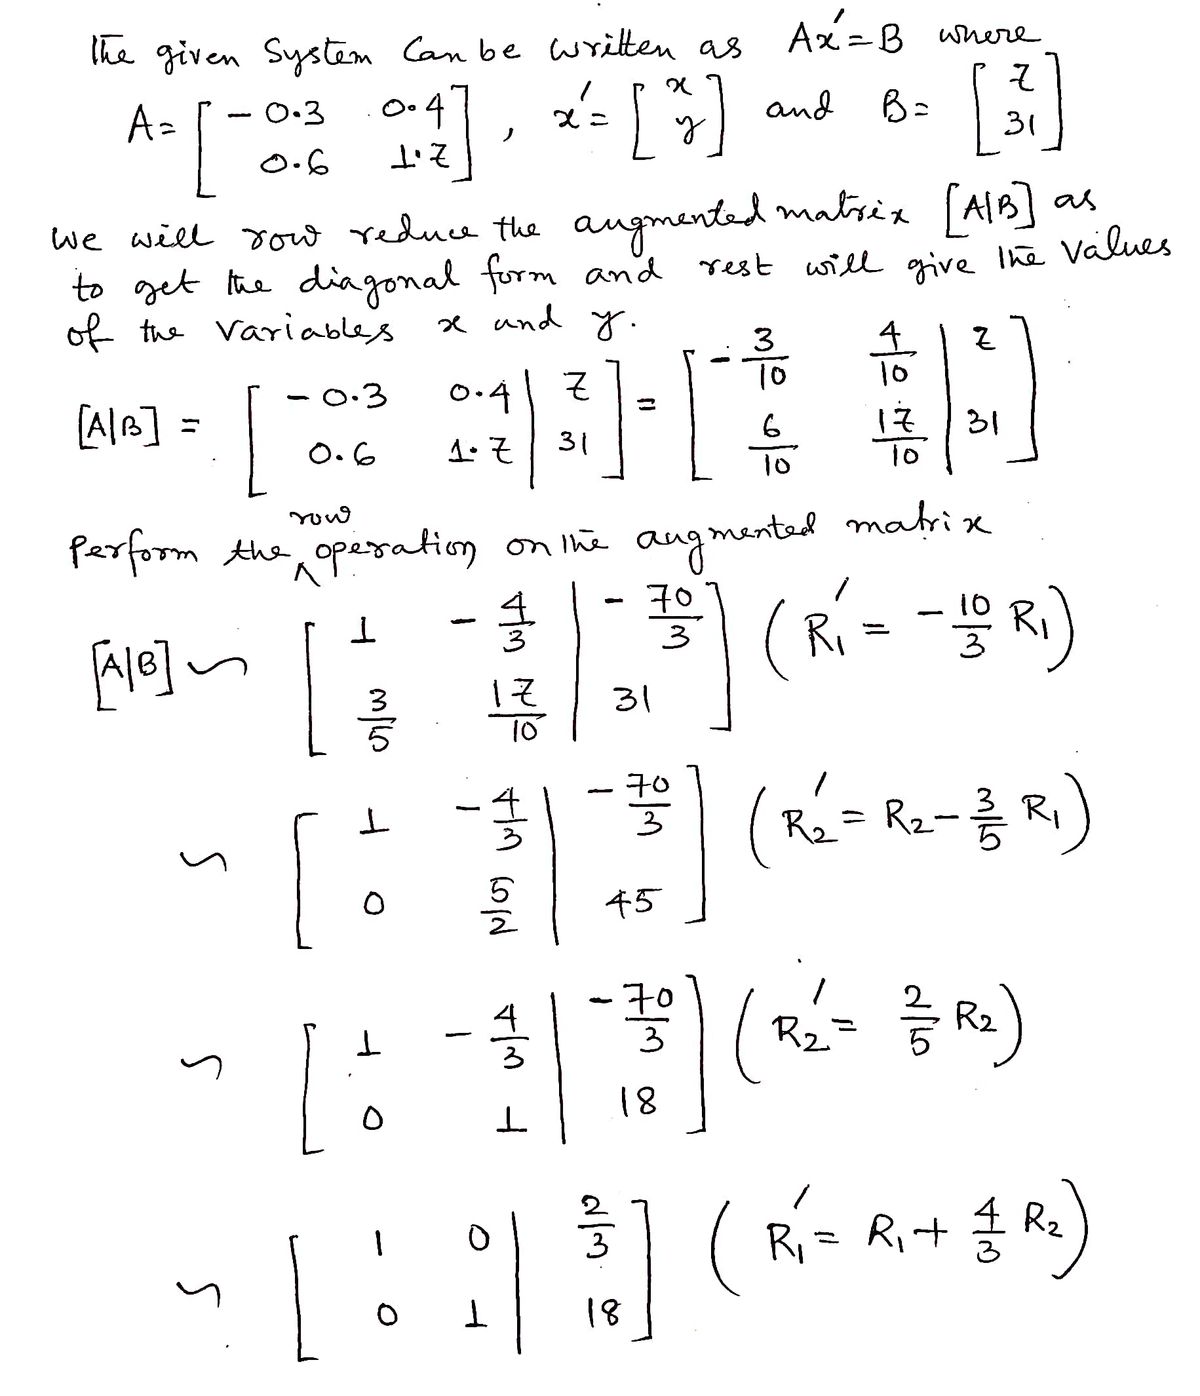 The given System Can be written as Ax'=B where
A= [ -0.3 0.4 ; 0.6 1.7 ] , x'= [ x ; y ] and B= [ 7 ; 31 ]
we will row reduce the augmented matrix [A|B] as
to get the diagonal form and rest will give the values
of the variables x and y.
[A|B] = [ -0.3 0.4 | 7 ; 0.6 1.7 | 31 ] = [ -3/10 4/10 | 7 ; 6/10 17/10 | 31 ]
Perform the row operation on the augmented matrix
[A|B] ~ [ 1 -4/3 | -70/3 ; 3/5 17/10 | 31 ] ( R₁' = -10/3 R₁ )
~ [ 1 -4/3 | -70/3 ; 0 5/2 | 45 ] ( R₂' = R₂ - 3/5 R₁ )
~ [ 1 -4/3 | -70/3 ; 0 1 | 18 ] ( R₂' = 2/5 R₂ )
~ [ 1 0 | 2/3 ; 0 1 | 18 ] ( R₁' = R₁ + 4/3 R₂ )